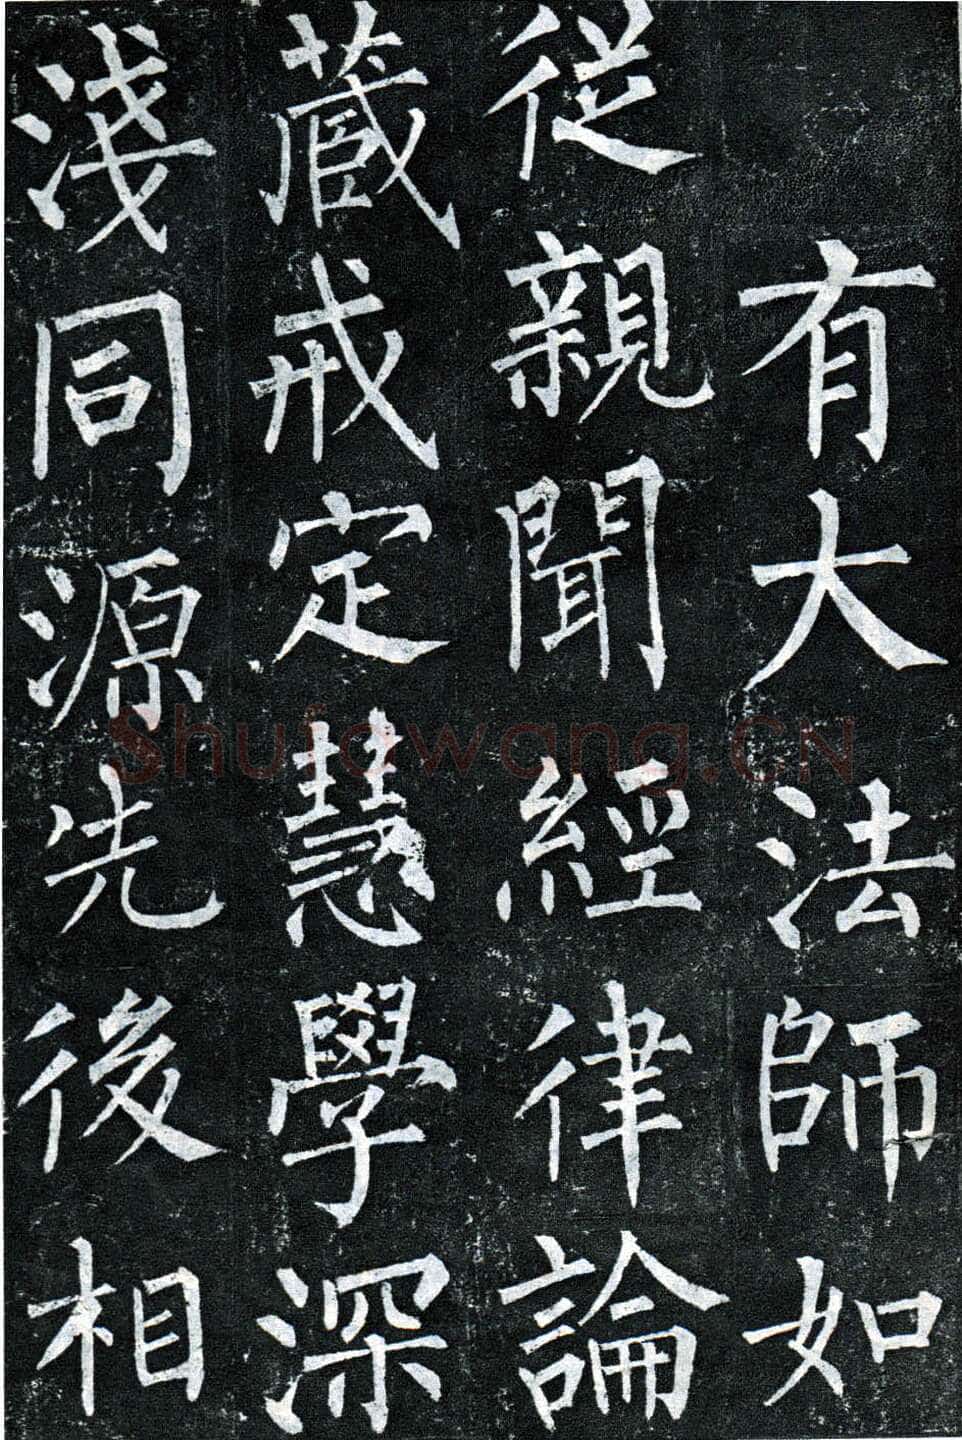 有大法師如
從親聞經律論
藏戒定慧學深
淺同源先後相
Shufawang.CN